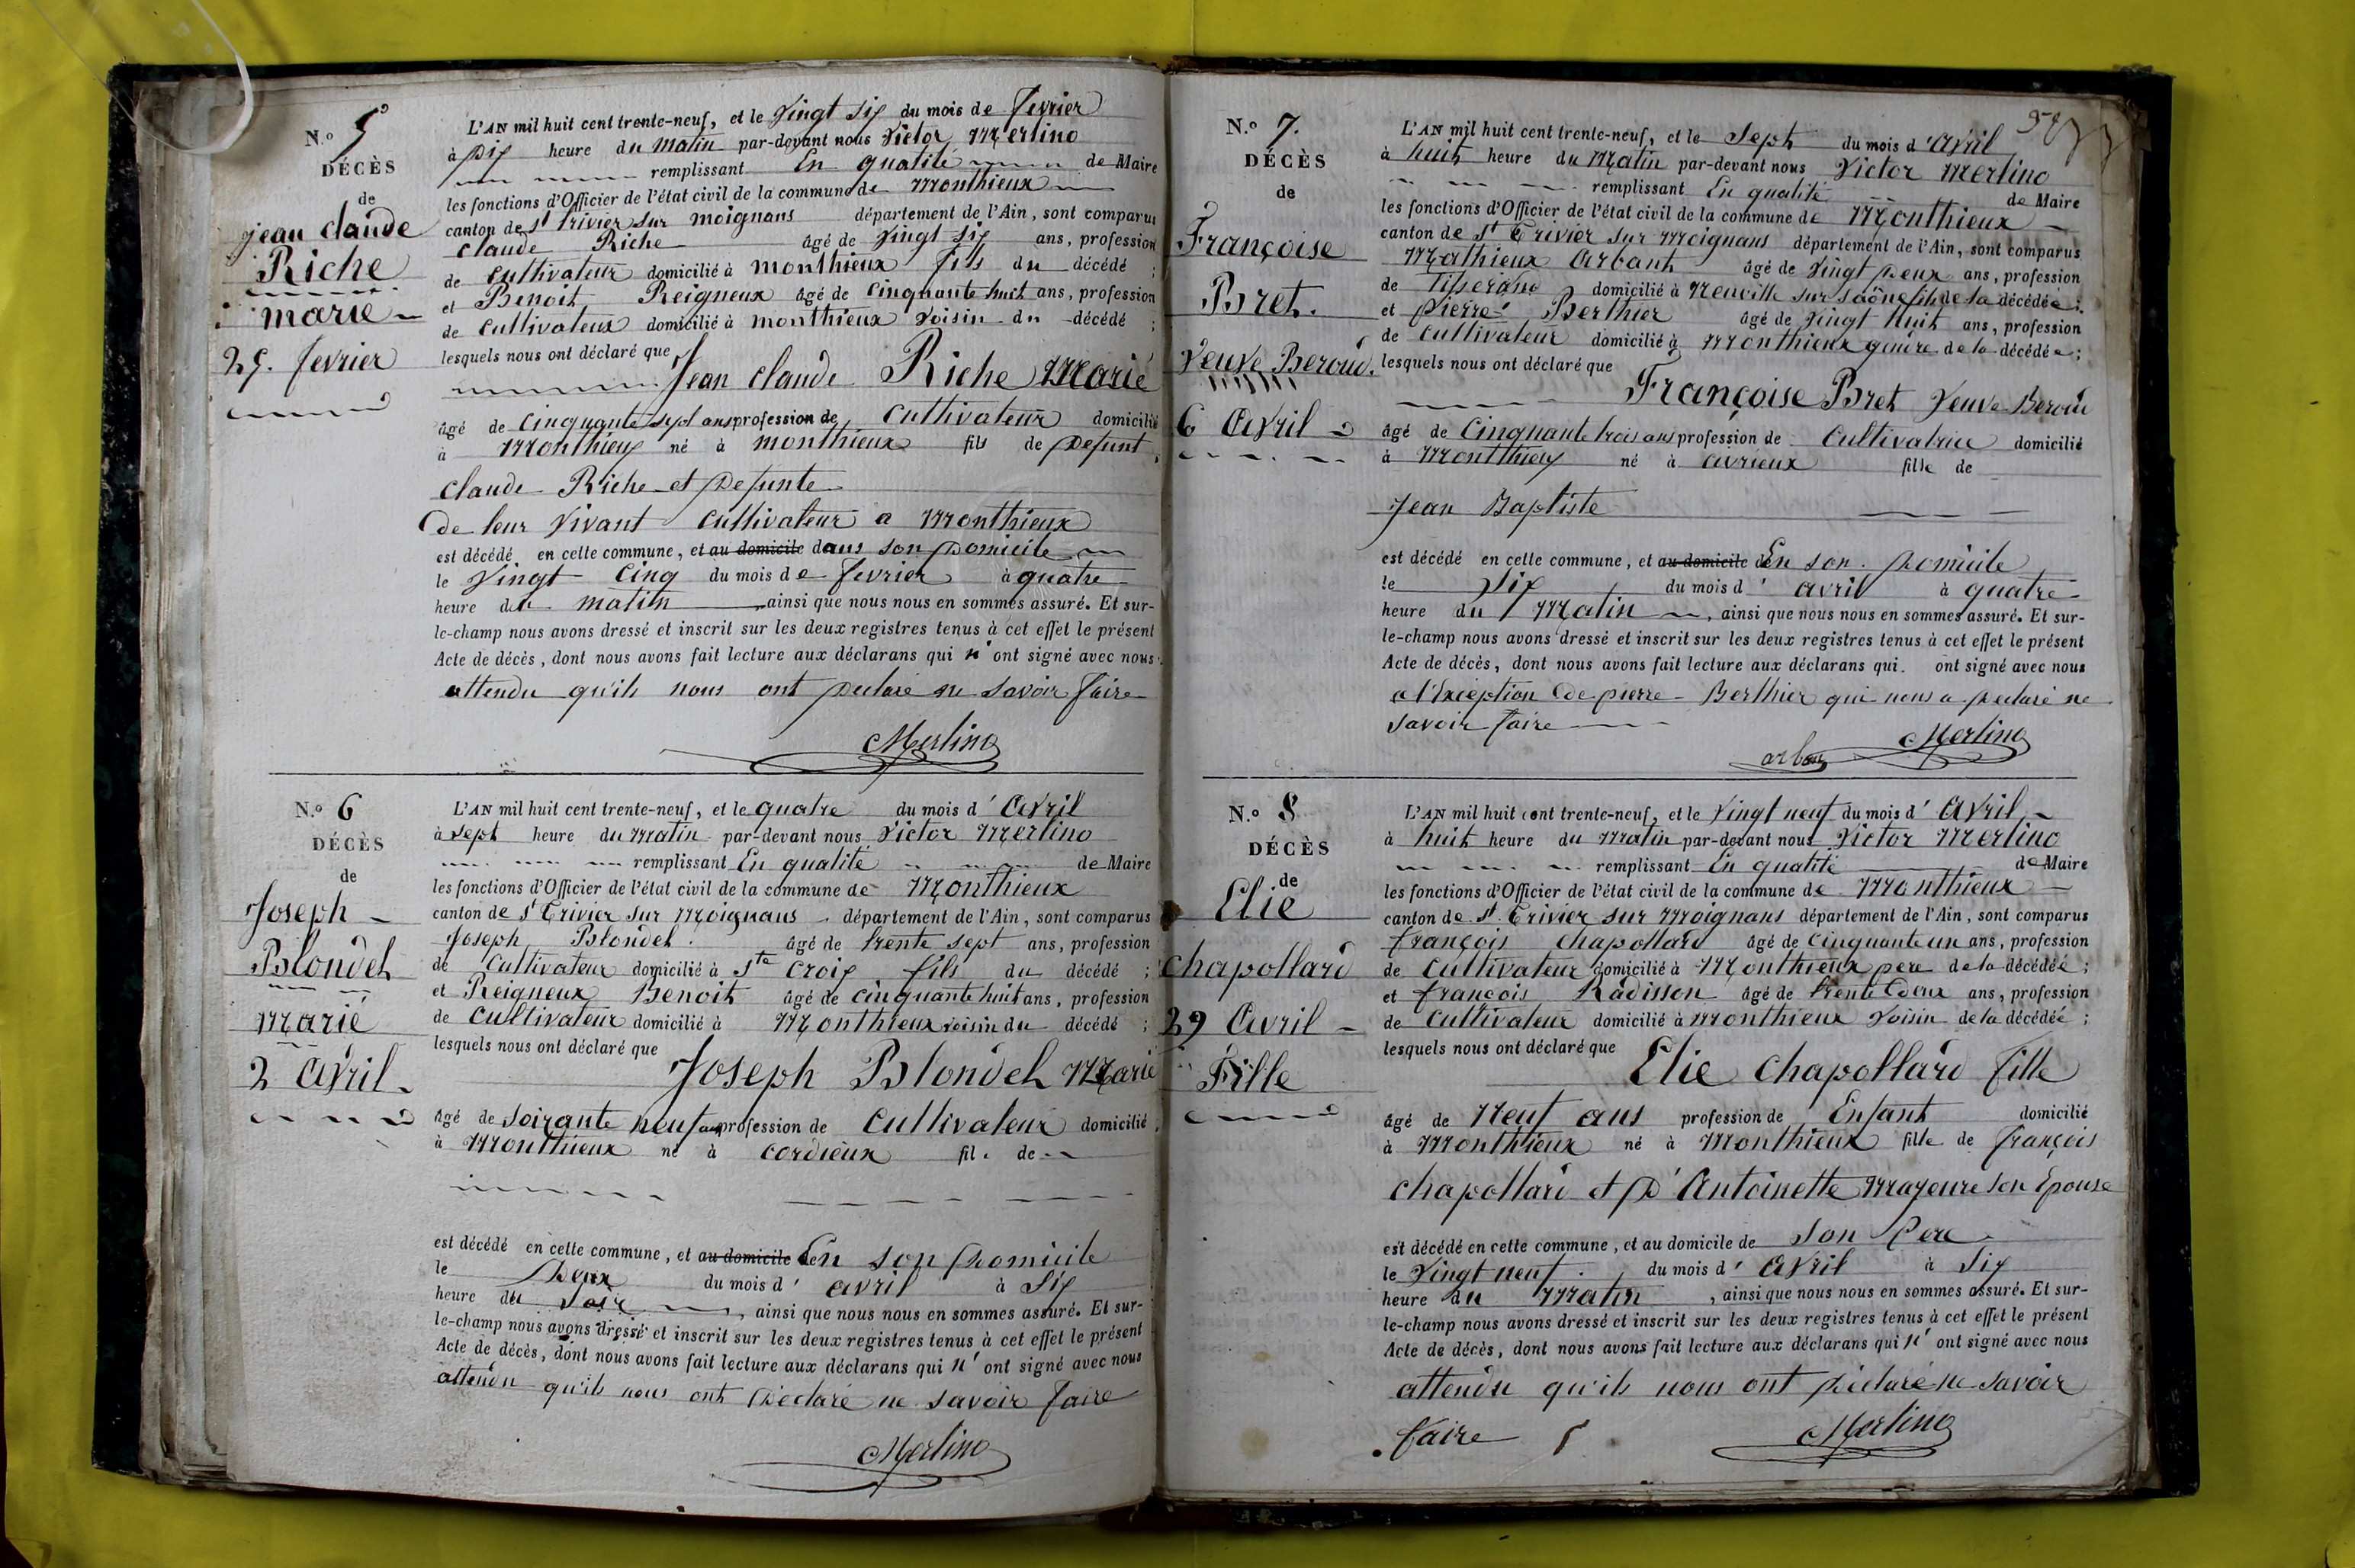 N.o 5
DÉCÈS
de
jean claude
Riche
marié
25. fevrier
L'AN mil huit cent trente-neuf, et le Vingt Six du mois de fevrier
à Dix heure du matin par-devant nous Victor Merlino
remplissant En qualité de Maire
les fonctions d'Officier de l'état civil de la commune de Monthieux
canton de st trivier sur moignans département de l'Ain, sont comparus
Claude Riche âgé de Vingt Six ans, profession
de Cultivateur domicilié à monthieux fils du décédé ;
et Benoit Reigneux âgé de Cinquante huit ans, profession
de Cultivateur domicilié à monthieux Voisin du décédé ;
lesquels nous ont déclaré que
Jean Claude Riche Marié
âgé de Cinquante sept ans profession de Cultivateur domicilié
à Monthieux né à monthieux fils de Defunt
Claude Riche et Defunte
De leur Vivant Cultivateur a Monthieux
est décédé en celle commune, et au domicile dans son Domicile
le Vingt Cinq du mois de fevrier à quatre
heure du matin ainsi que nous nous en sommes assuré. Et sur-
le-champ nous avons dressé et inscrit sur les deux registres tenus à cet effet le présent
Acte de décès, dont nous avons fait lecture aux déclarans qui n' ont signé avec nous
attendu qu'ils nous ont Declaré ne Savoir faire
Merlino
N.o 6
DÉCÈS
de
Joseph
Blondel
Marié
2 Avril
L'AN mil huit cent trente-neuf, et le quatre du mois d' Avril
à sept heure du Matin par-devant nous Victor Merlino
remplissant En qualité de Maire
les fonctions d'Officier de l'état civil de la commune de Monthieux
canton de st Trivier Sur Moignans département de l'Ain, sont comparus
Joseph Blondel âgé de trente sept ans, profession
de Cultivateur domicilié à Ste Croix fils du décédé ;
et Reigneux Benoit âgé de cinquante huit ans, profession
de Cultivateur domicilié à Monthieux voisin du décédé ;
lesquels nous ont déclaré que
Joseph Blondel Marié
âgé de Soixante neuf ans profession de Cultivateur domicilié
à Monthieux né à Cordieux fil. de
est décédé en celle commune, et au domicile En son Domicile
le Deux du mois d' avril à Six
heure du Soir, ainsi que nous nous en sommes assuré. Et sur-
le-champ nous avons dressé et inscrit sur les deux registres tenus à cet effet le présent
Acte de décès, dont nous avons fait lecture aux déclarans qui n' ont signé avec nous
attendu qu'ils nous ont Déclaré ne savoir faire
Merlino
N.o 7.
DÉCÈS
de
Françoise
Bret.
Veuve Beroud.
6 Avril
L'AN mil huit cent trente-neuf, et le Sept du mois d' Avril
à huit heure du Matin par-devant nous Victor Merlino
remplissant En qualité de Maire
les fonctions d'Officier de l'état civil de la commune de Monthieux
canton de st Trivier sur Moignans département de l'Ain, sont comparus
Mathieux Arbant âgé de Vingt Deux ans, profession
de Tisserand domicilié à Neuville sur Saône fils de la décédée ;
et pierre Berthier âgé de Vingt huit ans, profession
de Cultivateur domicilié à Monthieux de la décédée ;
lesquels nous ont déclaré que
Françoise Bret Veuve Beroud
âgé de Cinquante trois ans profession de Cultivatrice domicilié
à Monthieux né à Civrieux fille de
Jean Baptiste
est décédé en celle commune, et au domicile En son Domicile
le Six du mois d' avril à quatre
heure du Matin, ainsi que nous nous en sommes assuré. Et sur-
le-champ nous avons dressé et inscrit sur les deux registres tenus à cet effet le présent
Acte de décès, dont nous avons fait lecture aux déclarans qui. ont signé avec nous
a l'Exception de pierre Berthier qui nous a Declaré ne
Savoir faire
Merlino
N.o 8
DÉCÈS
de
Elie
Chapollard
29 Avril
Fille
L'AN mil huit cent trente-neuf, et le Vingt neuf du mois d' Avril
à huit heure du Matin par-devant nous Victor Merlino
remplissant En qualité de Maire
les fonctions d'Officier de l'état civil de la commune de Monthieux
canton de st. Trivier sur Moignans département de l'Ain, sont comparus
françois Chapollard âgé de cinquante un ans, profession
de Cultivateur domicilié à Monthieux pere de la décédée ;
et françois Radisson âgé de trente Deux ans, profession
de Cultivateur domicilié à Monthieux Voisin de la décédée ;
lesquels nous ont déclaré que
Elie Chapollard fille
âgé de Neuf ans profession de Enfant domicilié
à Monthieux né à Monthieux fille de françois
Chapollard et D'Antoinette Mayeure son Epouse
est décédé en cette commune, et au domicile de Son Pere
le Vingt neuf du mois d' Avril à Six
heure du Matin, ainsi que nous nous en sommes assuré. Et sur-
le-champ nous avons dressé et inscrit sur les deux registres tenus à cet effet le présent
Acte de décès, dont nous avons fait lecture aux déclarans qui n' ont signé avec nous
attendu qu'ils nous ont Déclaré ne Savoir
faire
Merlino